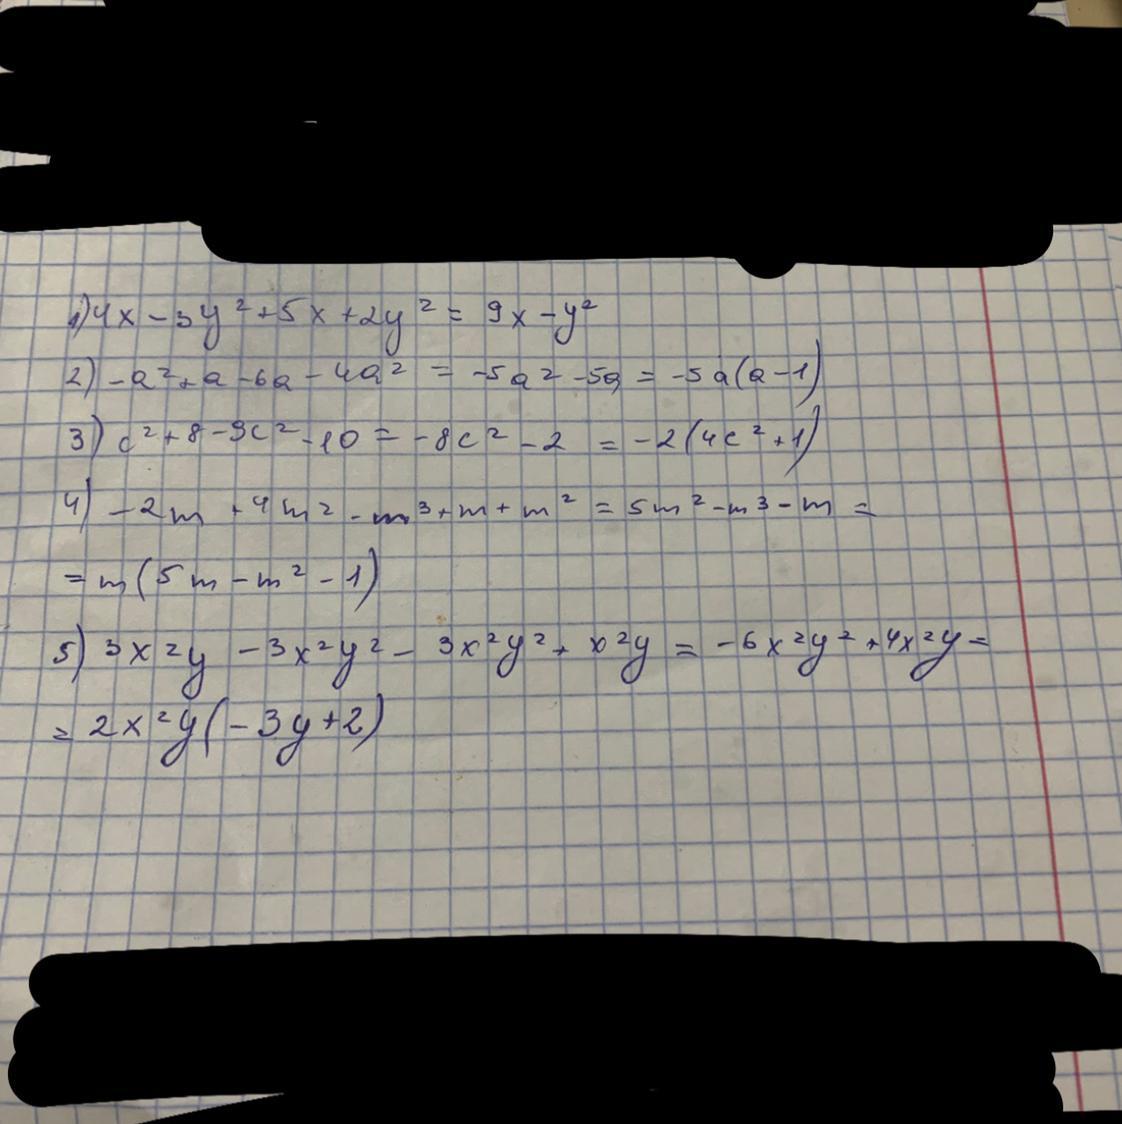 1) 4x - 3y² + 5x + 2y² = 9x - y²
2) -a² + a - 6a - 4a² = -5a² - 5a = -5a(a - 1)
3) c² + 8 - 9c² - 10 = -8c² - 2 = -2(4c² + 1)
4) -2m + 4m² - m³ + m + m² = 5m² - m³ - m =
= m(5m - m² - 1)
5) 3x²y - 3x²y² - 3x²y² + x²y = -6x²y² + 4x²y =
= 2x²y(-3y + 2)